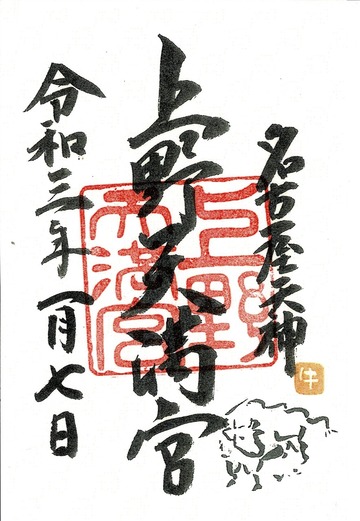 名古屋天神
牛
上野天満宮
上野
天満宮
令和三年一月七日